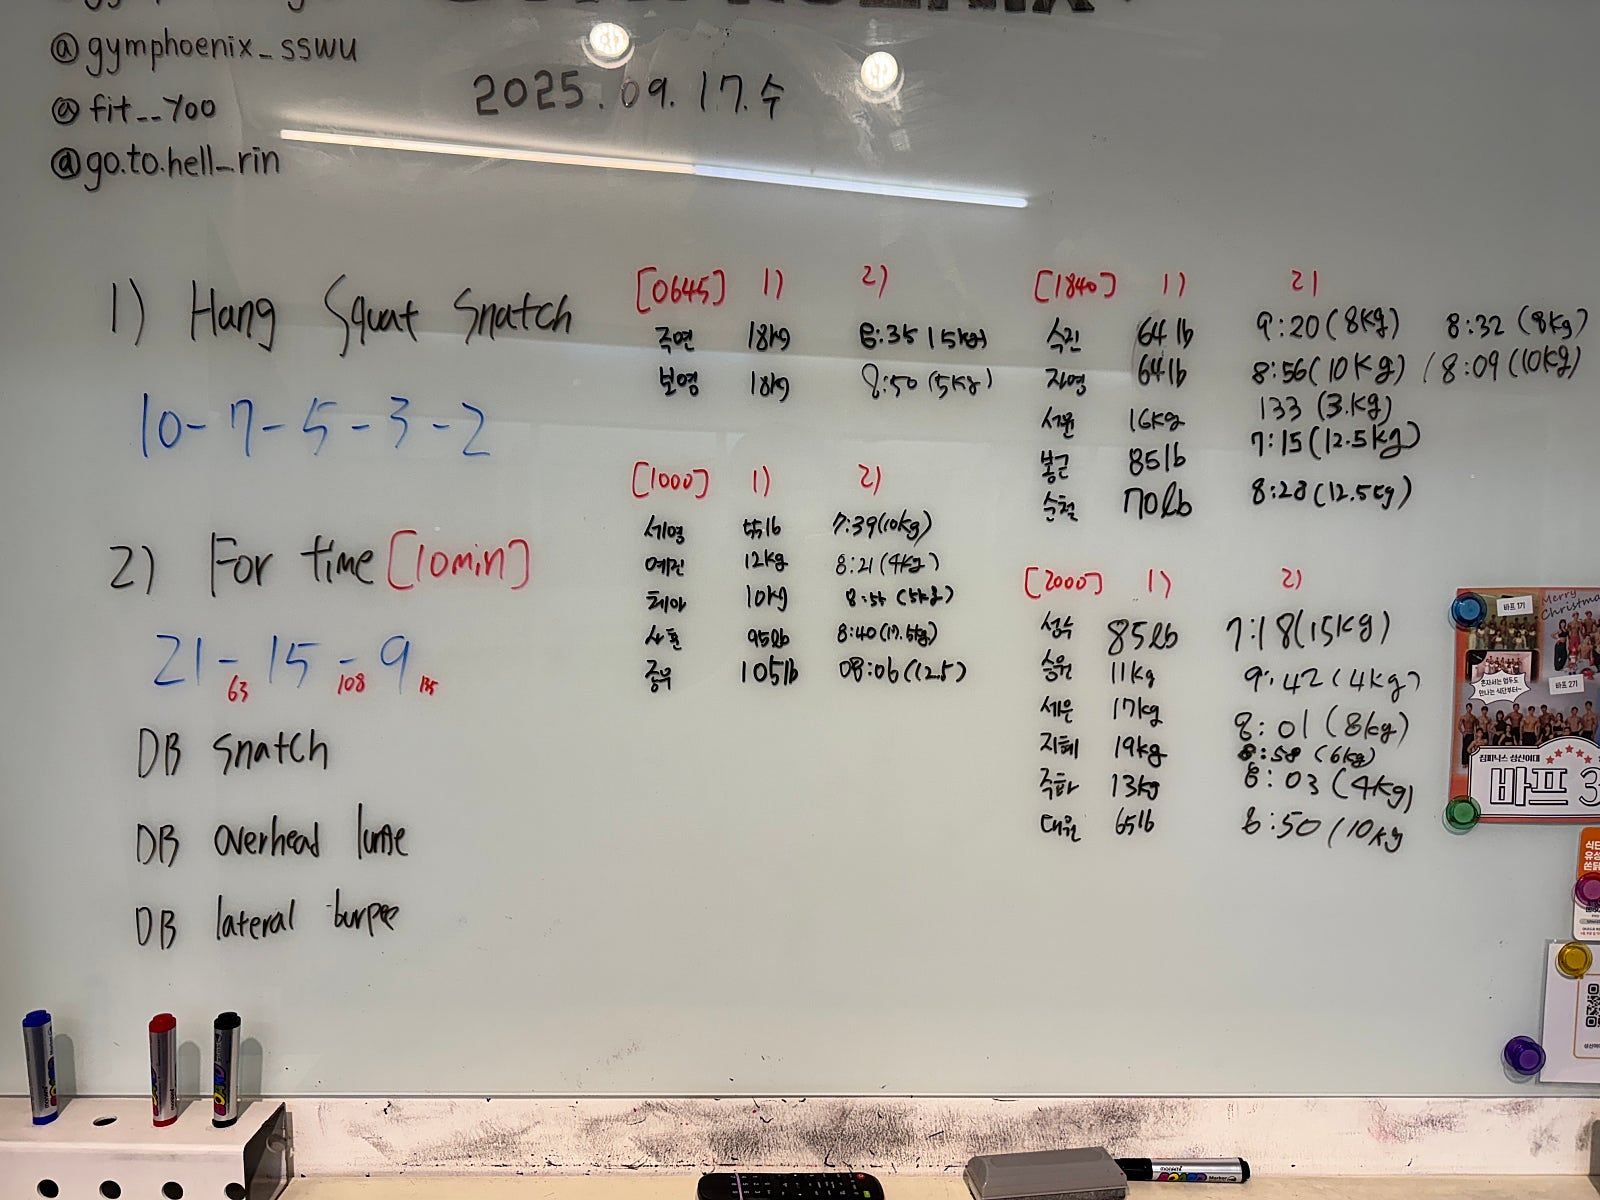 @gymphoenix_sswu
@fit__yoo
@go.to.hell_rin
2025.09.17.수
1) Hang Squat Snatch
10-7-5-3-2
2) For time [10min]
21-15-9
63 108 135
DB snatch
DB overhead lunge
DB lateral burpee
[0645] 1) 2)
주연 18kg 8:35 (5kg)
보영 18kg 8:50 (5kg)
[1000] 1) 2)
세영 55lb 7:39(10kg)
예진 12kg 8:21(4kg)
테아 10kg 8:55 (5kg)
95lb 8:40(17.5kg)
종우 105lb 08:06(12.5)
[1840] 1) 2)
수진 64lb 9:20(8kg) 8:32 (8kg)
자영 64lb 8:56(10kg) / 8:09(10kg)
서윤 16kg 133 (3.kg)
봉근 85lb 7:15(12.5kg)
순철 70lb 8:28(12.5kg)
[2000] 1) 2)
성수 85lb 7:18(15kg)
승원 11kg 9:42(4kg)
세은 17kg 8:01(8kg)
지혜 19kg 8:58 (6kg)
주화 13kg 8:03(4kg)
태원 65lb 8:50(10kg
Merry
Christmas
바프 1기
혼자서는 엄두도
안나는 식단부터~
바프 2기
짐피닉스 성신여대
바프 3
식단
유성
monami
Marker